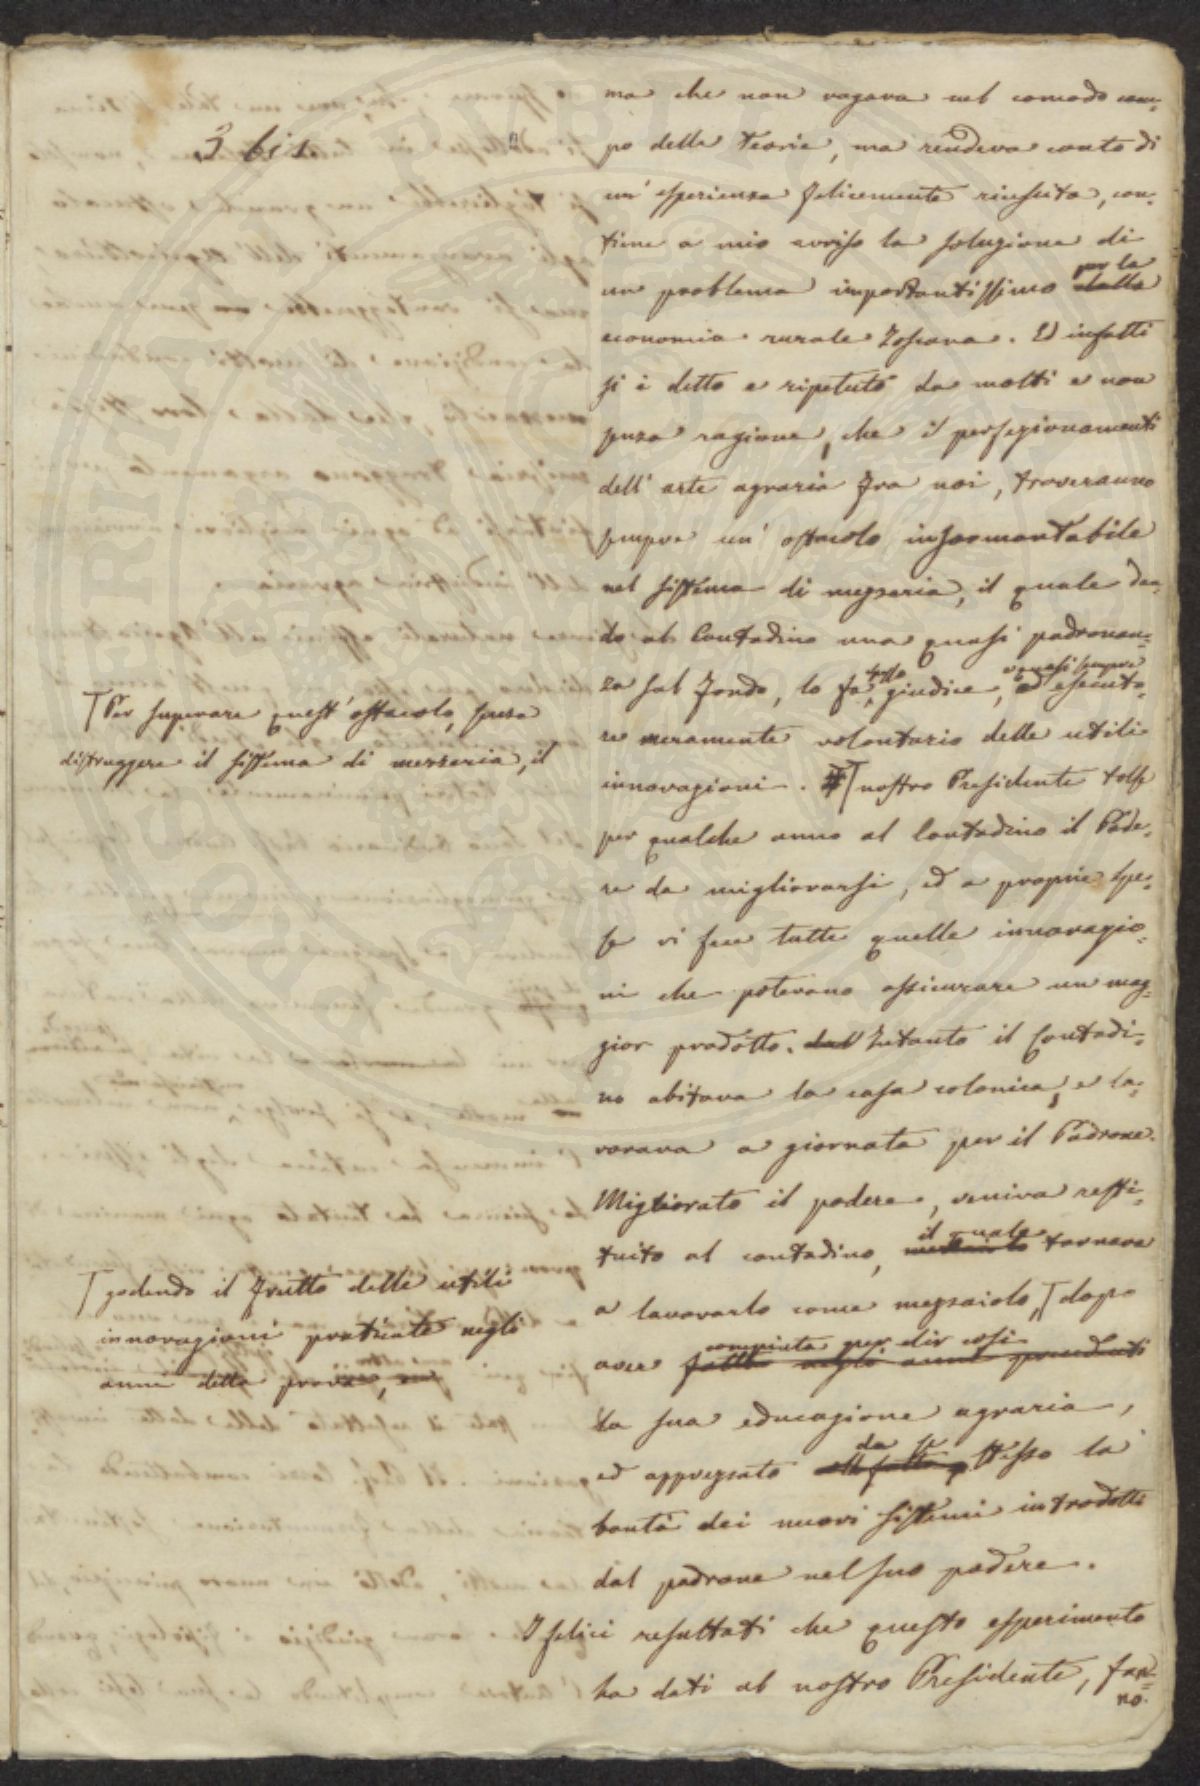 3 bis.
ma che non vagava nel comodo cam-
po delle Teorie, ma rendeva conto di
un' esperienza felicemente riescita, con-
tiene a mio avviso la soluzione di
un problema importantissimo della per la
economia rurale Toscana. Ed infatti
si è detto e ripetuto da molti e non
senza ragione, che i perfezionamenti
dell' arte agraria fra noi, troveranno
sempre un' ostacolo insormontabile
nel sistema di mezzeria, il quale dan-
do al Contadino una quasi padronan-
za sul fondo, lo fa, giudice, e quasi sempre esecuto-
re meramente volontario delle utili
innovazioni. nostro Presidente tolse
per qualche anno al Contadino il Pode-
re da migliorarsi, ed a proprie spe-
se vi fece tutte quelle innovazio-
ni che potevano assicurare un mag-
gior prodotto. Intanto il Contadi-
no abitava la casa colonica, e la-
vorava a giornata per il Padrone.
Migliorato il podere, veniva resti-
tuito al contadino, il quale tornava
a lavorarlo come mezzaiolo, dopo
avere fatto negli anni precedenti compiuta per dir così
la sua educazione agraria,
ed apprezzato da se stesso la
bontà dei nuovi sistemi introdotti
dal padrone nel suo podere.
I felici resultati che questo esperimento
ha dati al nostro Presidente, fan-
no.
Per superare quest' ostacolo, senza
distruggere il sistema di mezzeria, il
godendo il frutto delle utili
innovazioni praticate negli
anni della prova,